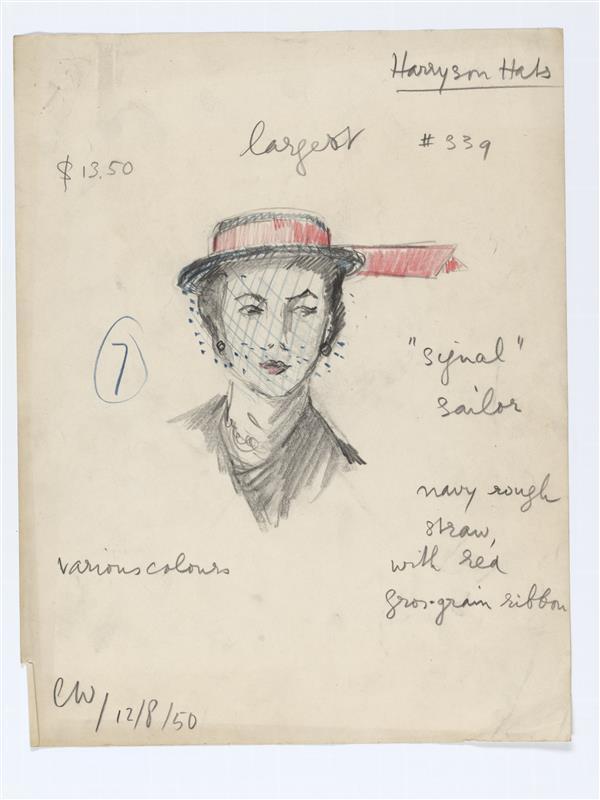 Harryson Hats
largest
# 339
$ 13.50
7
"signal"
sailor
navy rough
straw,
with red
gros-grain ribbon
various colours
CW/12/8/50